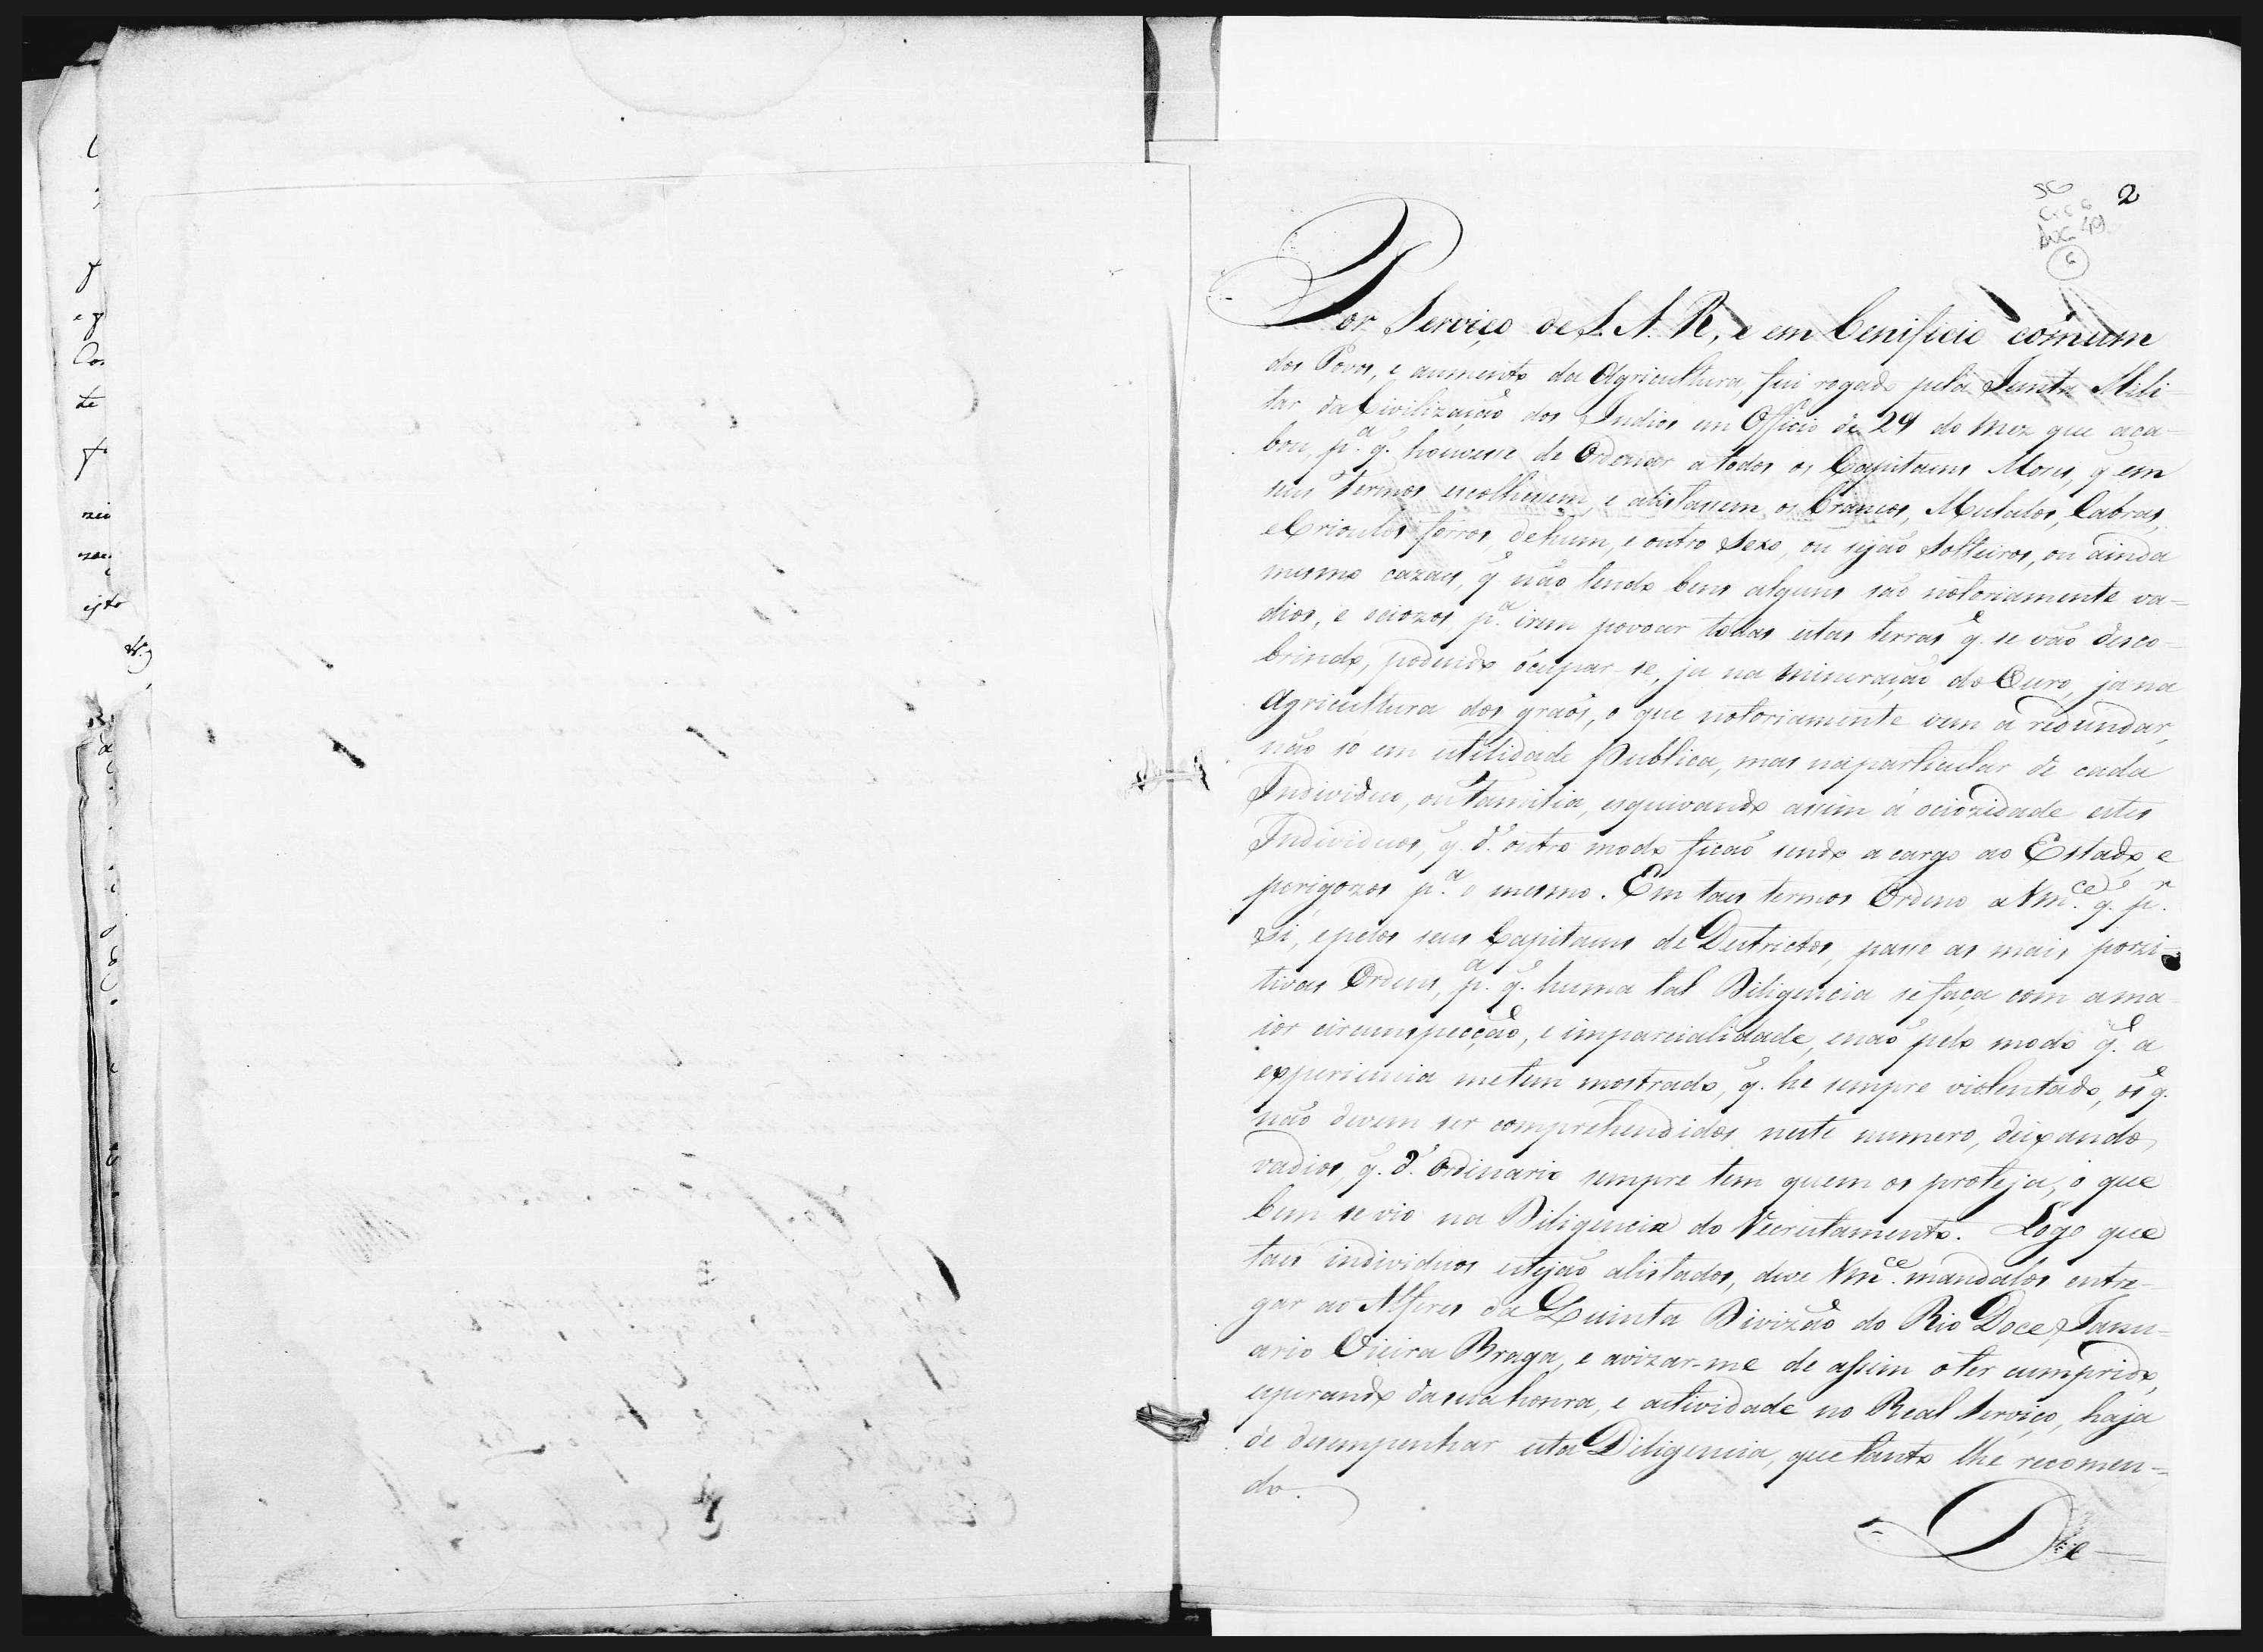 2
SG
Cx 6
Doc 49
6
Por Serviço de S. A. R., e em benificio comum
dos Povos, e aumento da Agricultura, fui rogado pela Junta Mili-
tar da Civilização dos Indios em Officio de 29 do mez que aca=
bou, p.ª q̃. houvesse de Ordenar a todos os Capitaens Mores, q̃ em
seus termos escolhessem, e alistassem os brancos, Mulatos, Cabras,
e Crioulos forros, de hum, e outro Sexo, ou sejão Solteiros, ou ainda
mesmo cazaes, q̃ não tendo bens alguns são notoriamente va=
dios, e ociozos p.ª irem povoar todas estas terras q̃. se vão desco-
brindo, podendo ocupar-se, ja na mineração do Ouro, ja na
Agricultura dos graõs, o que notoriamente vem a redundar,
não só em utilidade Publica, mas na particular de cada
Individuo, ou familia, esquivando assim á ociozidade estes
Individuos, q̃. d'outro modo ficaõ sendo a cargo ao Estado, e
perigozos p.ª o mesmo. Em taes termos Ordeno a Vm.ce q̃. p.r
Si, e pelos seus Capitaens de Destrictos, passe as mais pozi-
tivas Ordens, p.ª q̃. huma tal Diligencia se faça com a ma-
ior circunspecção, e imparcialidade, e naõ pelo modo q̃. a
experiencia me tem mostrado, q̃. he sempre violentado, os q̃.
não devem ser comprehendidos neste numero, deixando
vadios, q̃. d'Ordinario sempre tem quem os proteja, o que
bem se vio na Diligencia do Recrutamento. Logo que
taes individuos estejaõ alistados, deve Vm.ce mandalos entre-
gar ao Alferes da Quinta Divizão do Rio Doce, Janu-
ario Vieira Braga, e avizar-me de assim o ter cumprido,
esperando da sua honra, e actividade no Real Serviço, haja
de desempenhar esta Diligencia, que tanto lhe recomen-
do.
De